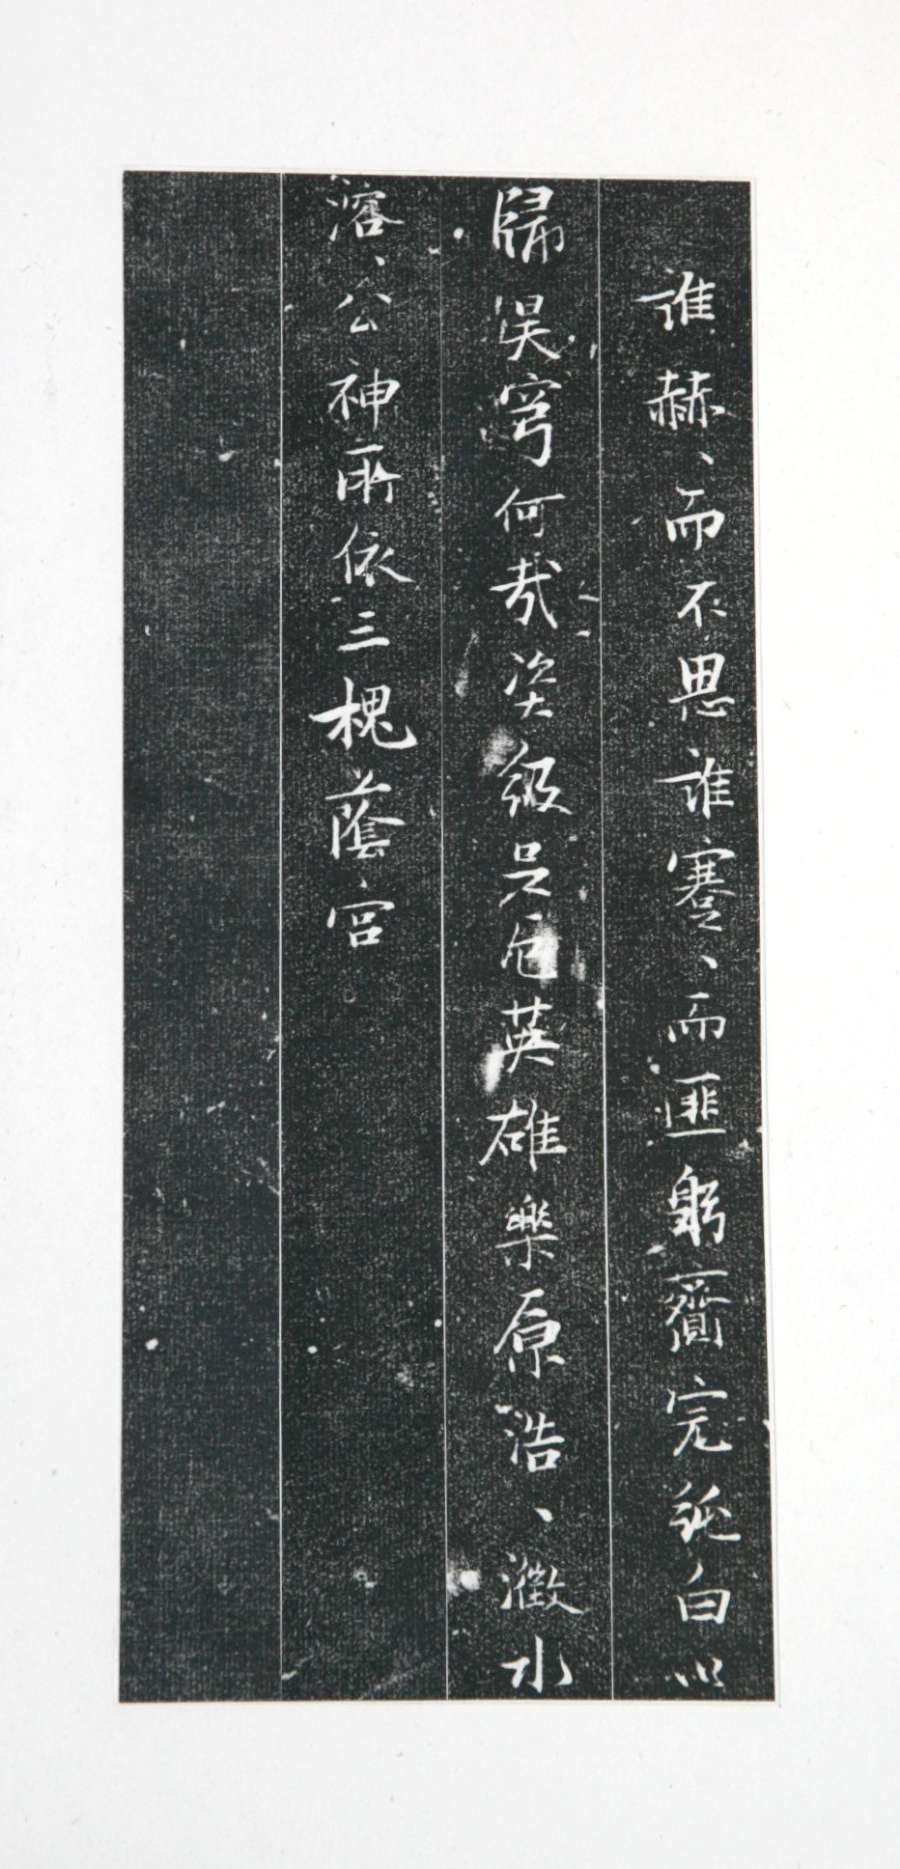 誰赫、而不思誰蹇、而匪躬齎完純白以
歸昊穹何哉次級是厄英雄樂原浩、澂水
溶、公神所依三槐蔭宮